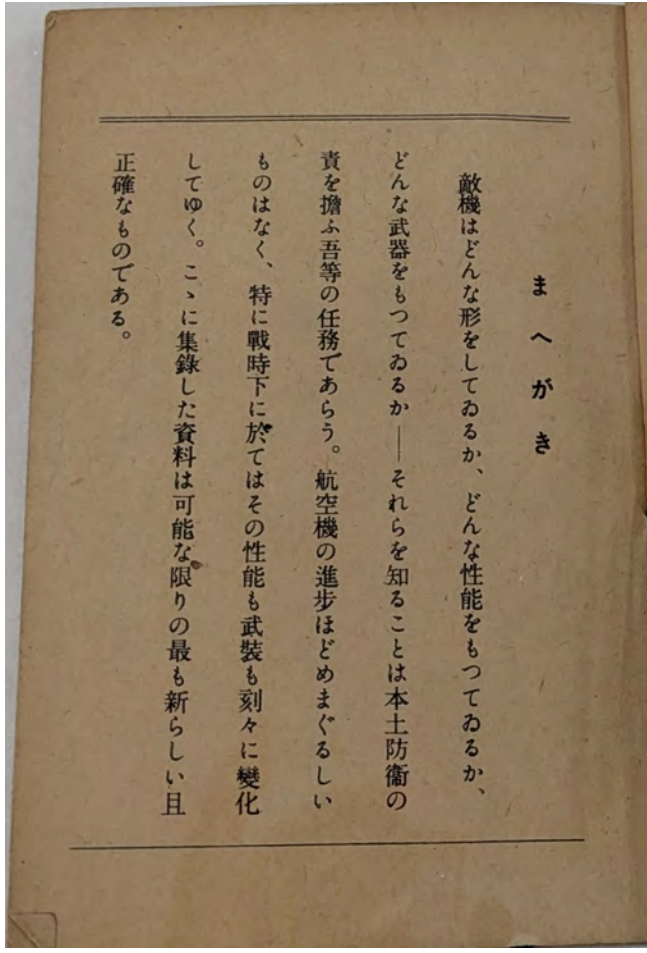 まへがき
敵機はどんな形をしてゐるか、どんな性能をもつてゐるか、
どんな武器をもつてゐるか――それらを知ることは本土防衞の
責を擔ふ吾等の任務であらう。航空機の進步ほどめまぐるしい
ものはなく、特に戰時下に於てはその性能も武裝も刻々に變化
してゆく。こゝに集錄した資料は可能な限りの最も新らしい且
正確なものである。